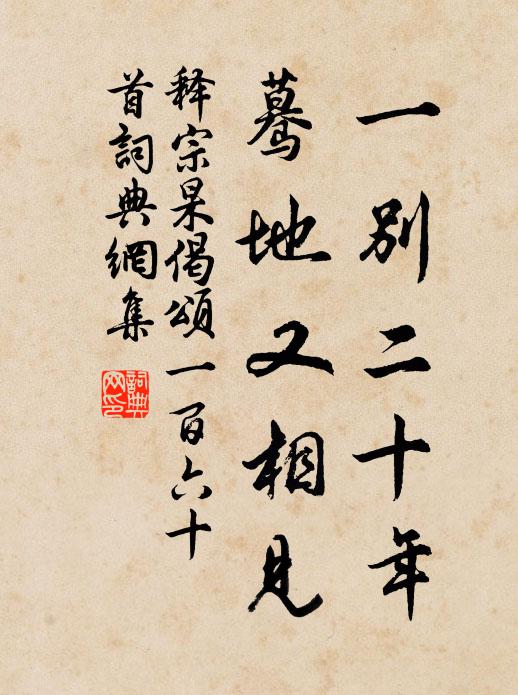 一别二十年
蓦地又相見
释宗杲偈頌一百六十
首詞典網集
詞典网印